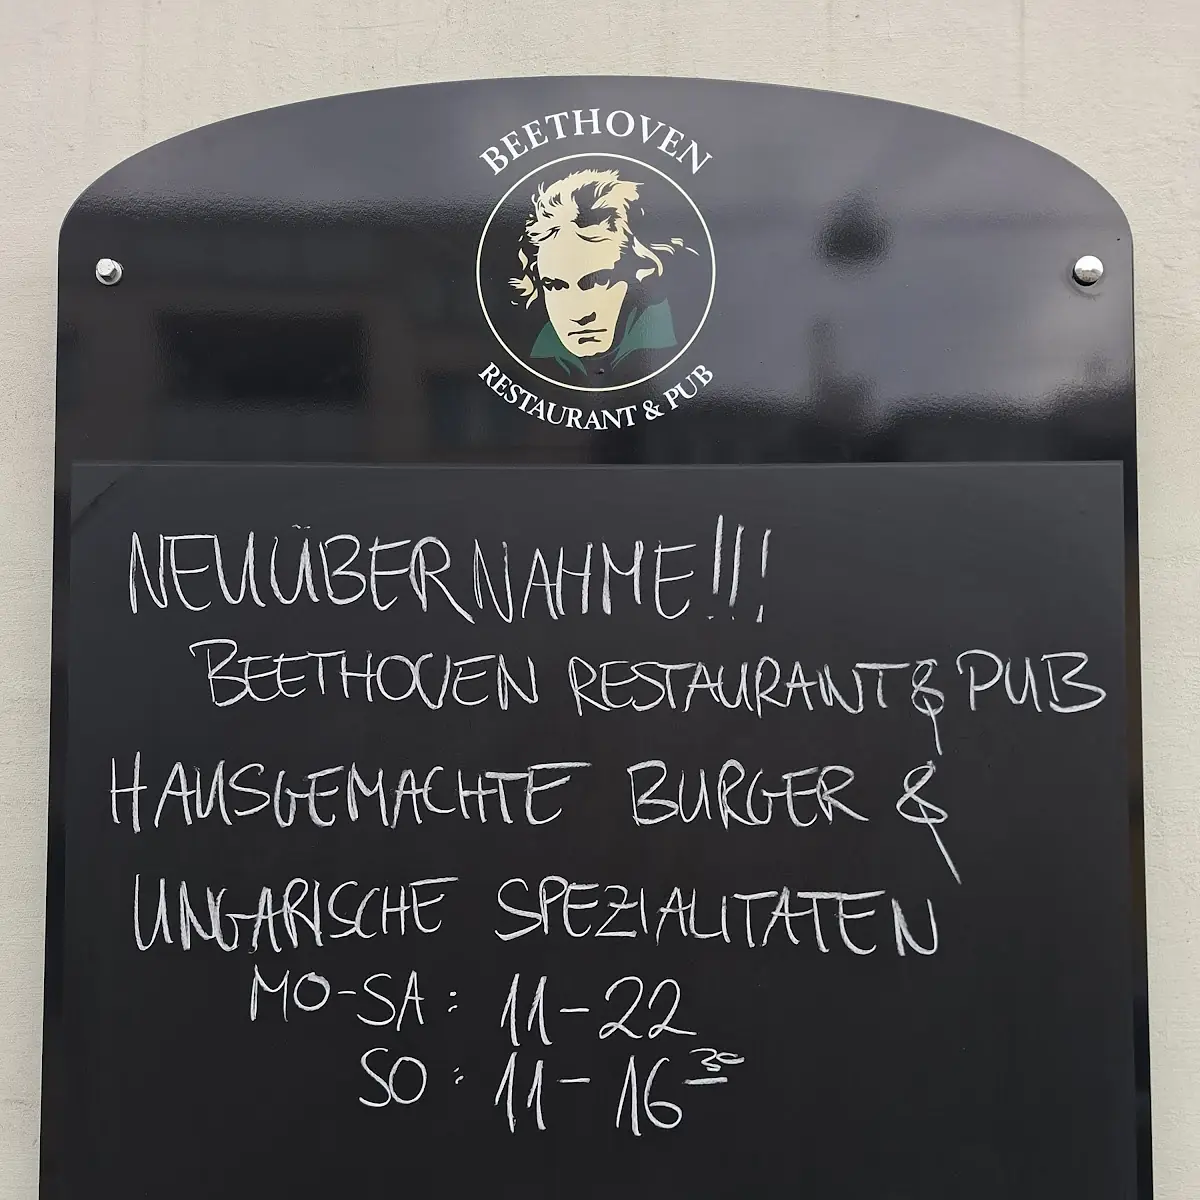 BEETHOVEN
RESTAURANT & PUB
NEUÜBERNAHME!!!
BEETHOVEN RESTAURANT & PUB
HAUSGEMACHTE BURGER &
UNGARISCHE SPEZIALITATEN
MO-SA: 11-22
SO: 11-16³⁰